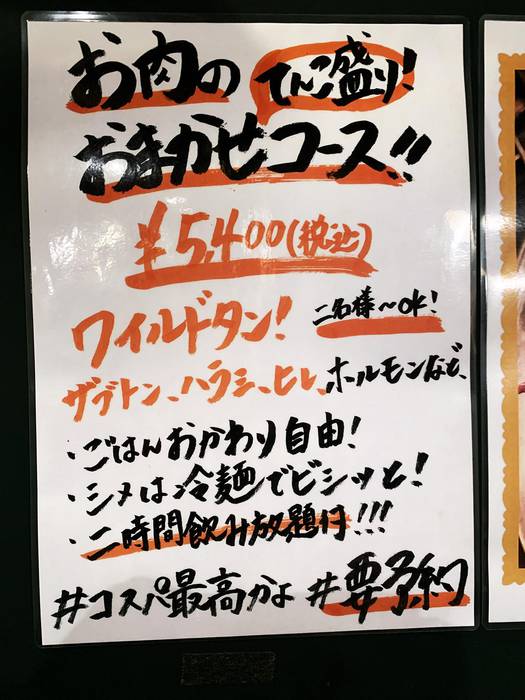 お肉の てんこ盛り!
おまかせコース!!
¥5,400(税込)
ワイルドタン! 二名様〜OK!
ザブトン、ハラミ、ヒレ、ホルモンなど、
・ごはんおかわり自由!
・シメは冷麺でビシッと!
・二時間飲み放題付!!!
#コスパ最高かよ #要予約